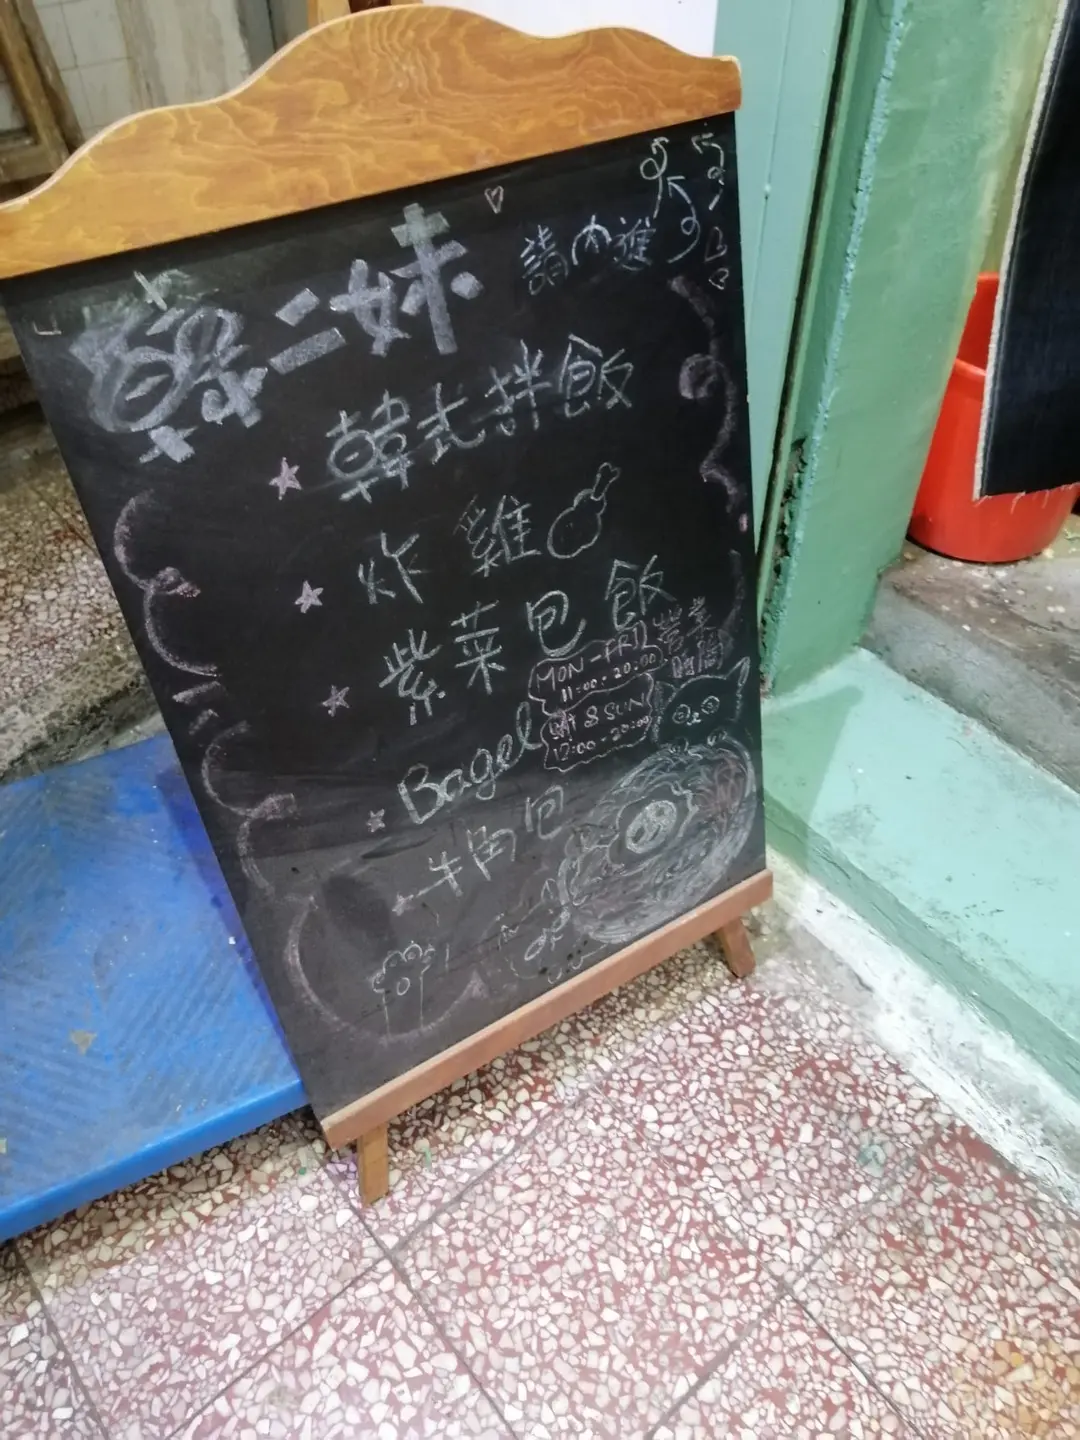 二妹
請內進
韓式拌飯
炸雞
紫菜包飯
營業時間
MON-FRI
11:00-20:00
SAT & SUN
12:00-20:00
Bagel
牛角包